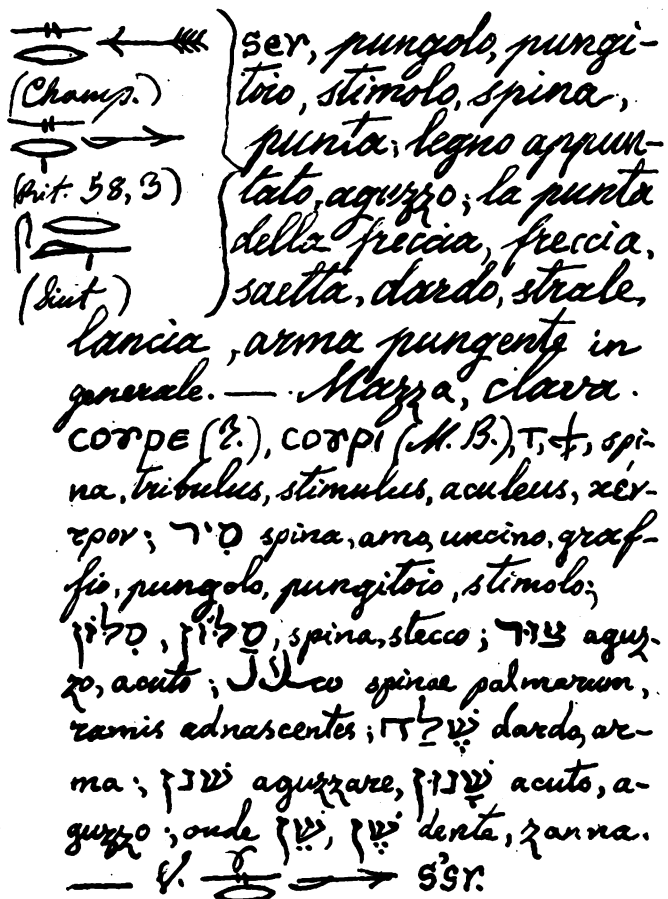 ser, pungolo, pungi-
(Champ.) toio, stimolo, spina,
punta; legno appun-
58, 3) tato, aguzzo; la punta
della freccia, freccia,
saetta, dardo, strale,
lancia, arma pungente in
generale. — Mazza, clava.
ⲥⲟⲩⲣⲉ (T.), ⲥⲟⲩⲣⲓ (M. B.), ⲧ, ϯ, spi-
na, tribulus, stimulus, aculeus, κέν-
τρον; סִיר spina, amo, uncino, graf-
fio, pungolo, pungitoio, stimolo;
סַלּוֹן, סִלּוֹן, spina, stecco; צור aguz-
zo, acuto; سُلَّاء spinae palmarum,
ramis adnascentes; שֶׁלַח dardo, ar-
ma; שׁנן aguzzare, שָׁנוּן acuto, a-
guzzo; onde שֵׁן, שֶׁן dente, zanna.
— V. s'sr.